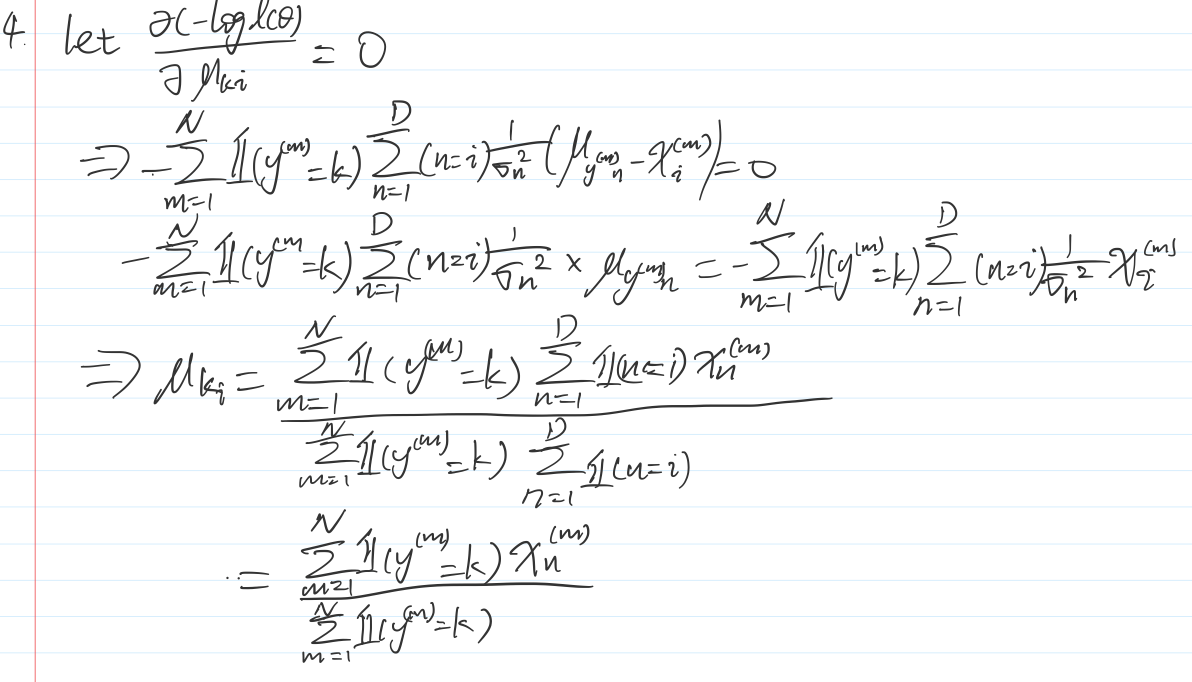 4. let ∂(-log l(θ) / ∂μ_{ki} = 0
⇒ -∑_{m=1}^{N} 𝟙(y^{(m)}=k) ∑_{n=1}^{D} (n=i) 1/σ_n^2 (μ_{y^{(m)}n} - x_i^{(m)}) = 0
-∑_{m=1}^{N} 𝟙(y^{(m}=k) ∑_{n=1}^{D} (n=i) 1/σ_n^2 × μ_{y^{(m)}n} = -∑_{m=1}^{N} 𝟙(y^{(m)}=k) ∑_{n=1}^{D} (n=i) 1/σ_n^2 x_i^{(m)}
⇒ μ_{ki} = ∑_{m=1}^{N} 𝟙(y^{(m)}=k) ∑_{n=1}^{D} 𝟙(n=i) x_n^{(m)} / ∑_{m=1}^{N} 𝟙(y^{(m)}=k) ∑_{n=1}^{D} 𝟙(n=i)
= ∑_{m=1}^{N} 𝟙(y^{(m)}=k) x_n^{(m)} / ∑_{m=1}^{N} 𝟙(y^{(m)}=k)